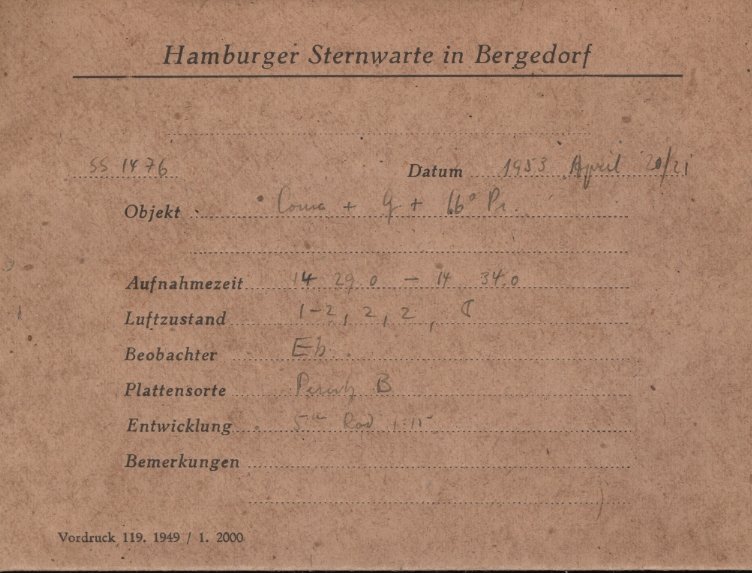 Hamburger Sternwarte in Bergedorf
SS 1476 Datum 1953 April 20/21
Objekt Coma + + 16° Pr.
Aufnahmezeit 14 29.0 – 14 34.0
Luftzustand 1–2, 2, 2,
Beobachter Eb.
Plattensorte Perutz B
Entwicklung 5m Rod 1:15
Bemerkungen
Vordruck 119. 1949 / 1. 2000